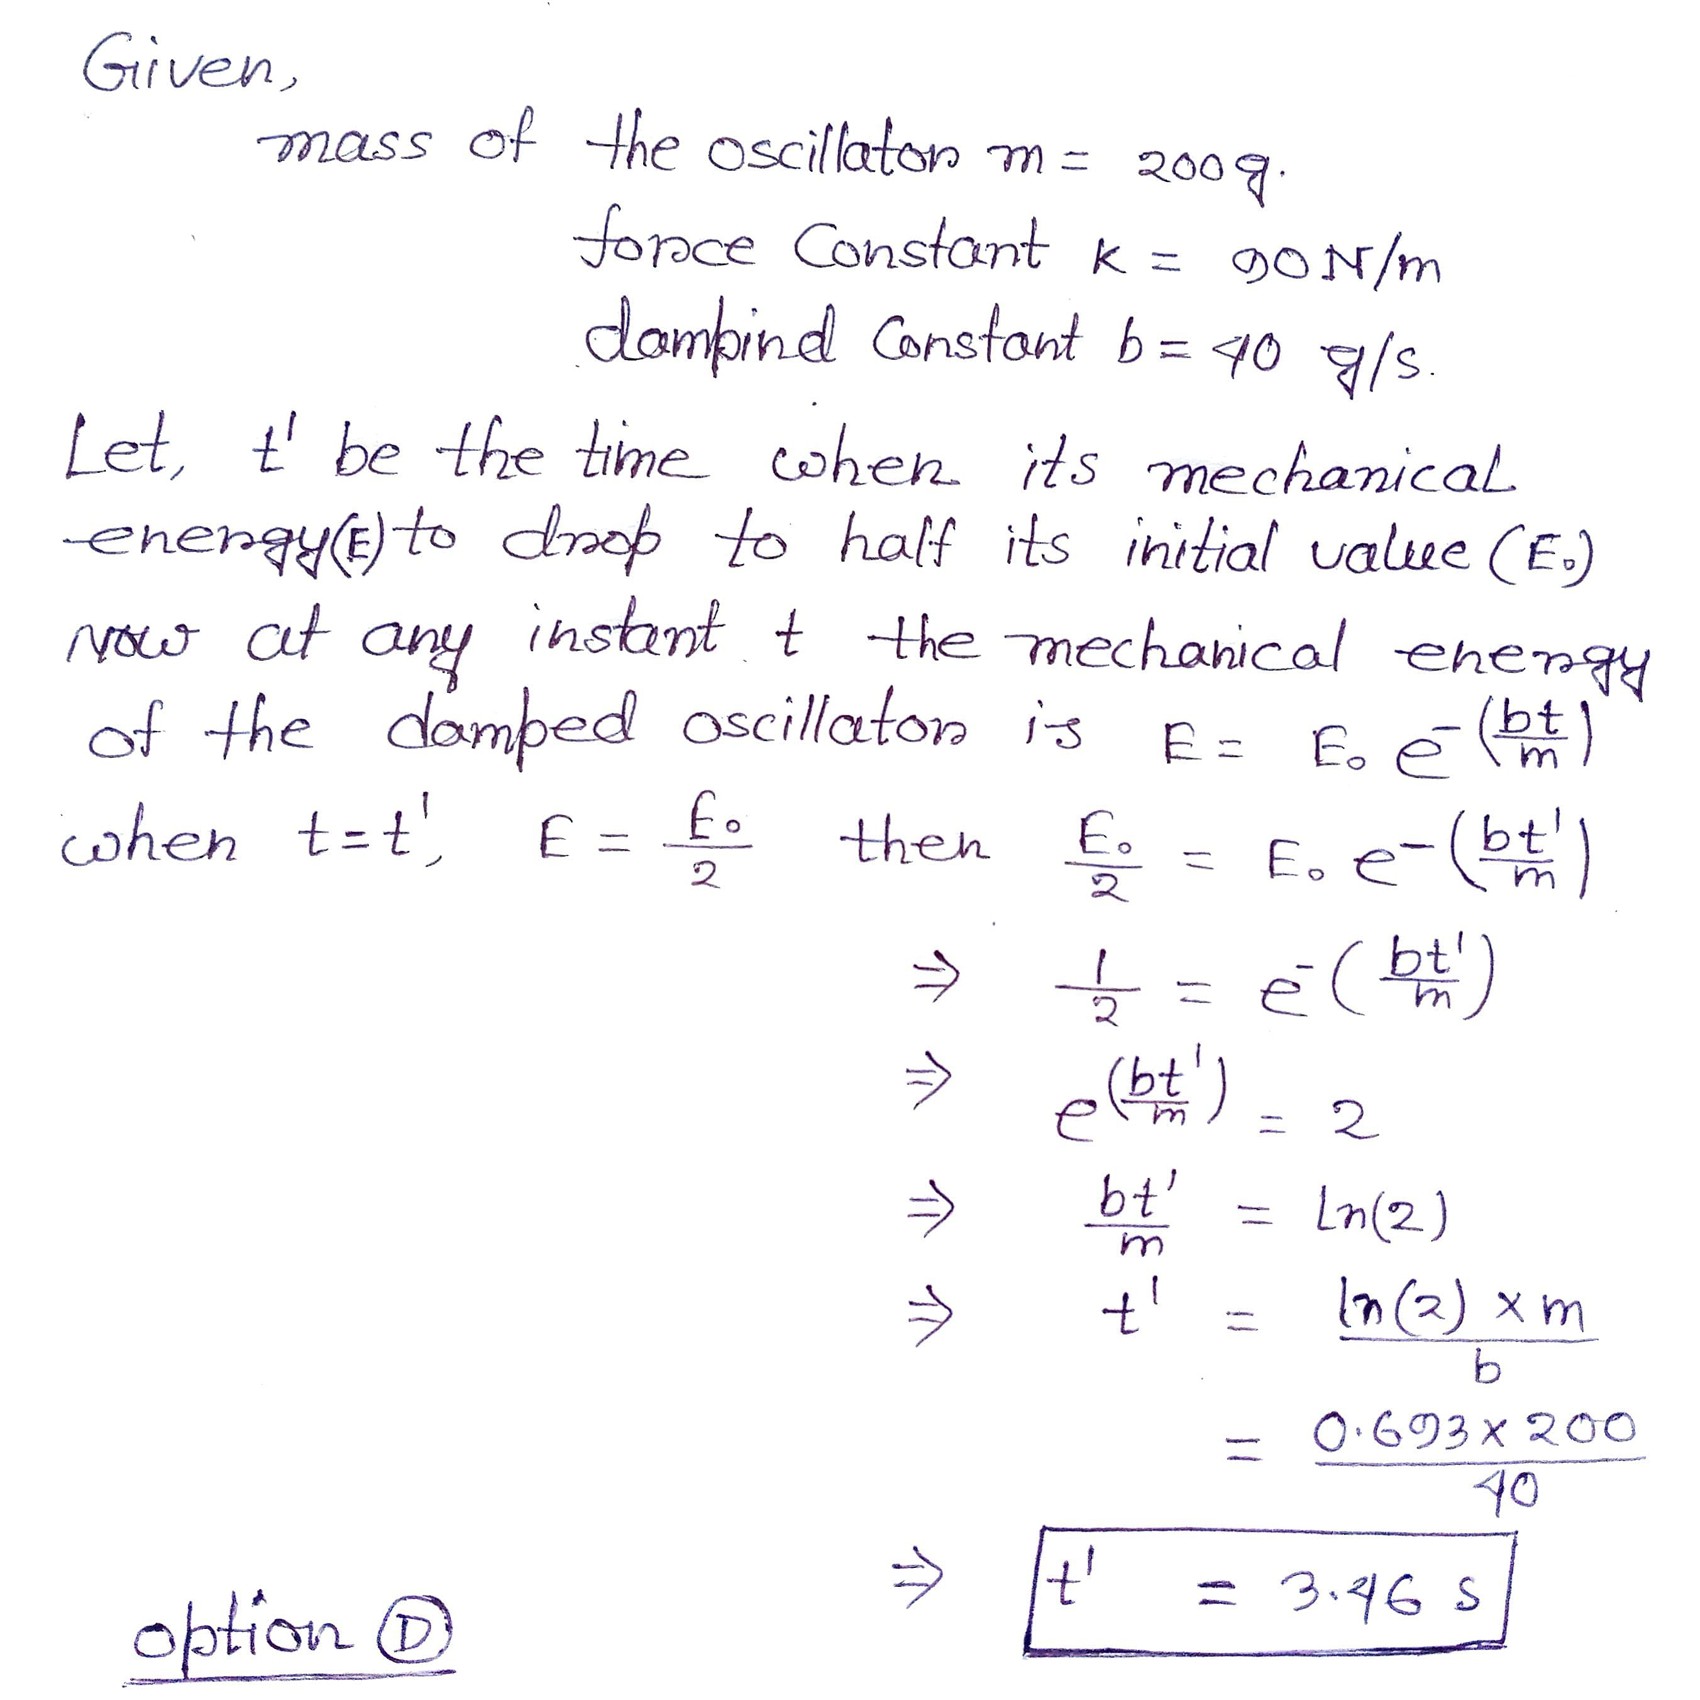 Given,
mass of the oscillator m = 200g.
force Constant K = 90 N/m
dampind Constant b = 40 g/s.
Let, t' be the time when its mechanical
energy(E) to drop to half its initial value (E₀)
Now at any instant t the mechanical energy
of the damped oscillator is E = E₀ e^-(bt/m)
when t=t', E = E₀/2 then E₀/2 = E₀ e^-(bt'/m)
⇒ 1/2 = e^-(bt'/m)
⇒ e^(bt'/m) = 2
⇒ bt'/m = Ln(2)
⇒ t' = ln(2) x m / b
= 0.693 x 200 / 40
⇒ t' = 3.46 s
option D